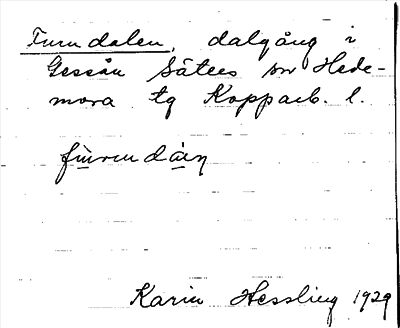 Furudalen, dalgång i
Gessån Säters sn Hede-
mora tg Kopparb. l.
Karin Hessling 1929